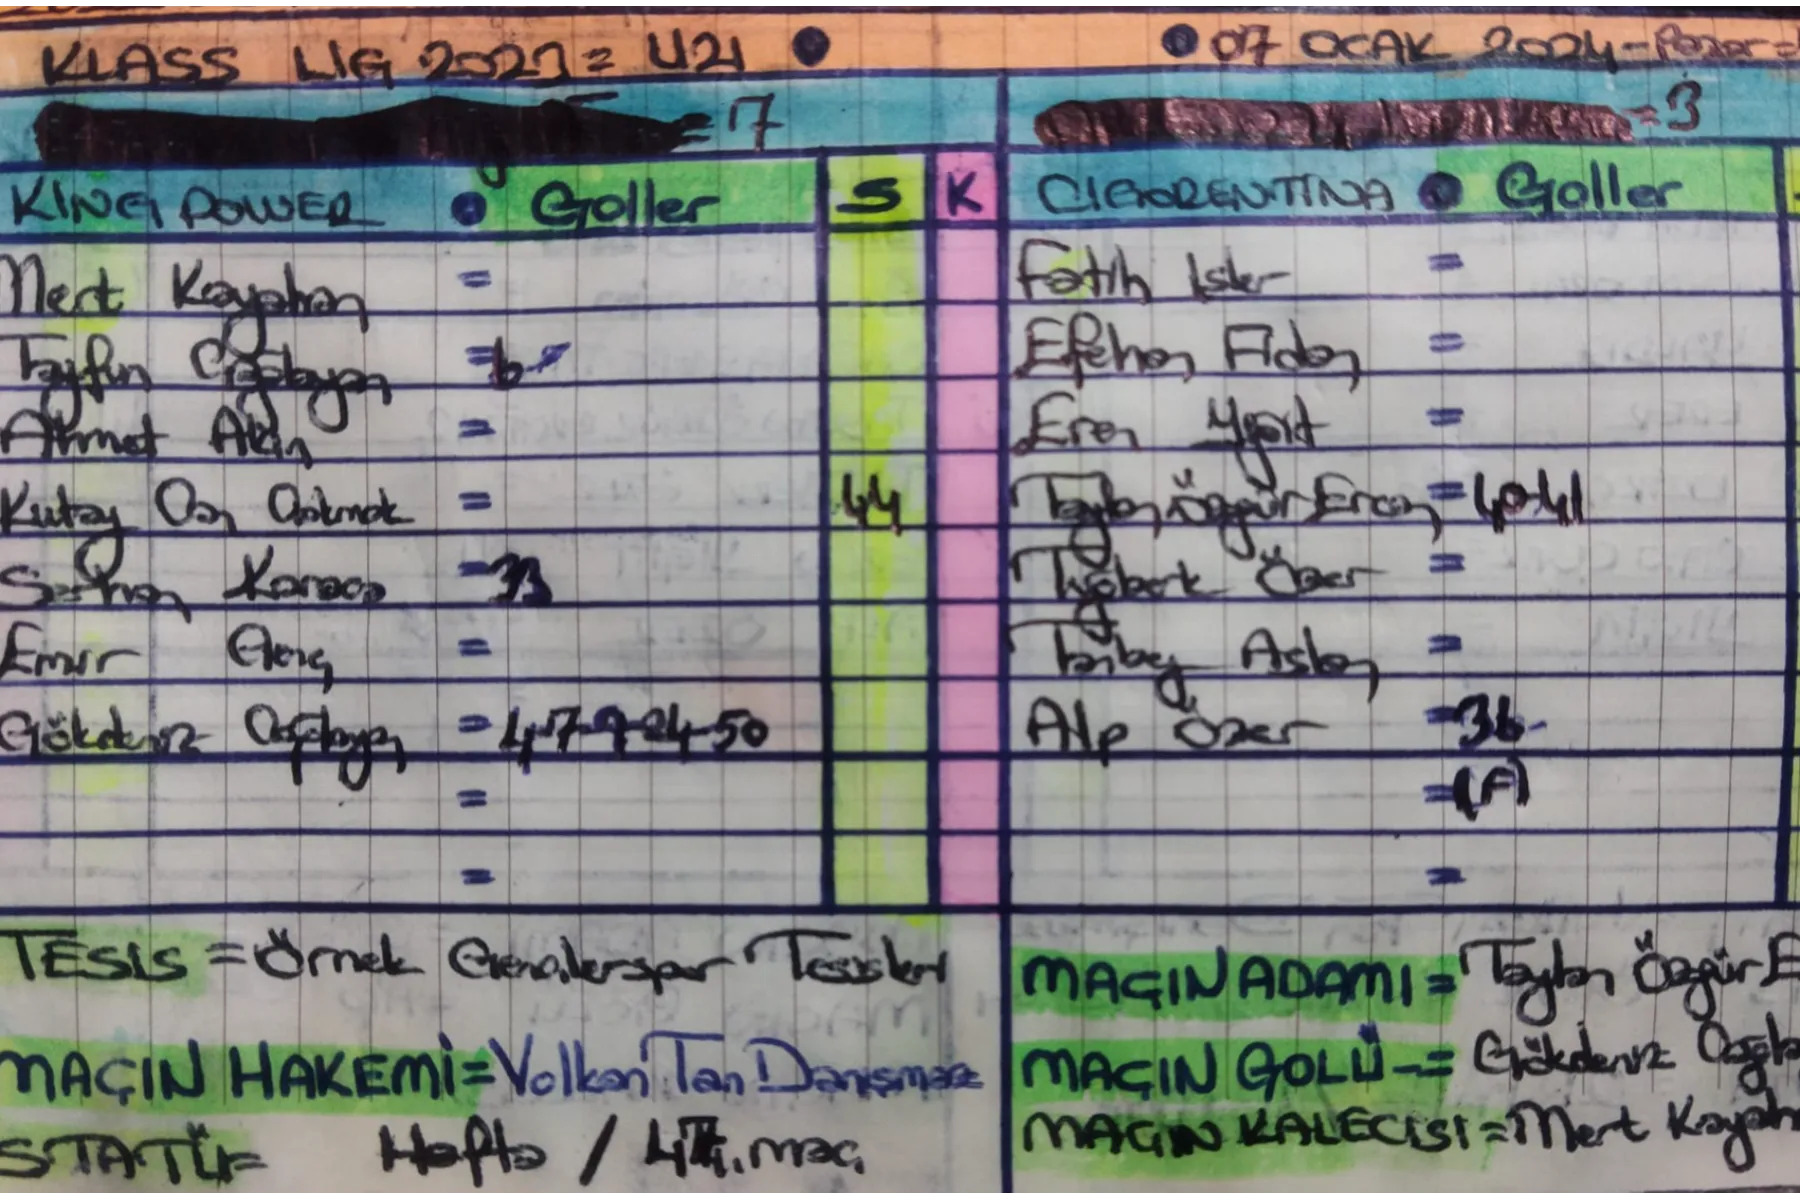 KLASS LİG 2023 = U21 ● ● 07 OCAK 2024 - Pazar =
= 7 = 3
KING POWER ● Goller S K CIGORENTINA ● Goller
Mert Kayahan = Fatih Isler =
Tayfun Çağlayan = 6 Efehan Fidan =
Ahmet Akın = Eren Yiğit =
Kutay Can = 44 Taylan Özgür Ercan = 40-41
Serhan Karaca = 33 Tuğberk Özer =
Emir Genç = Tanbey Aslan =
Gökdeniz Çağlayan = 4-7-9-24-50 Alp Özer = 36
= = (F)
= =
TESİS = Örnek Gençlerspor Tesisleri
MAÇIN ADAMI = Taylan Özgür E
MAÇIN HAKEMİ = Volkan Tan Danışmaz
MAÇIN GOLÜ = Gökdeniz Çağla
STATÜ= Hafta / 4. maç
MAÇIN KALECİSİ = Mert Kayah